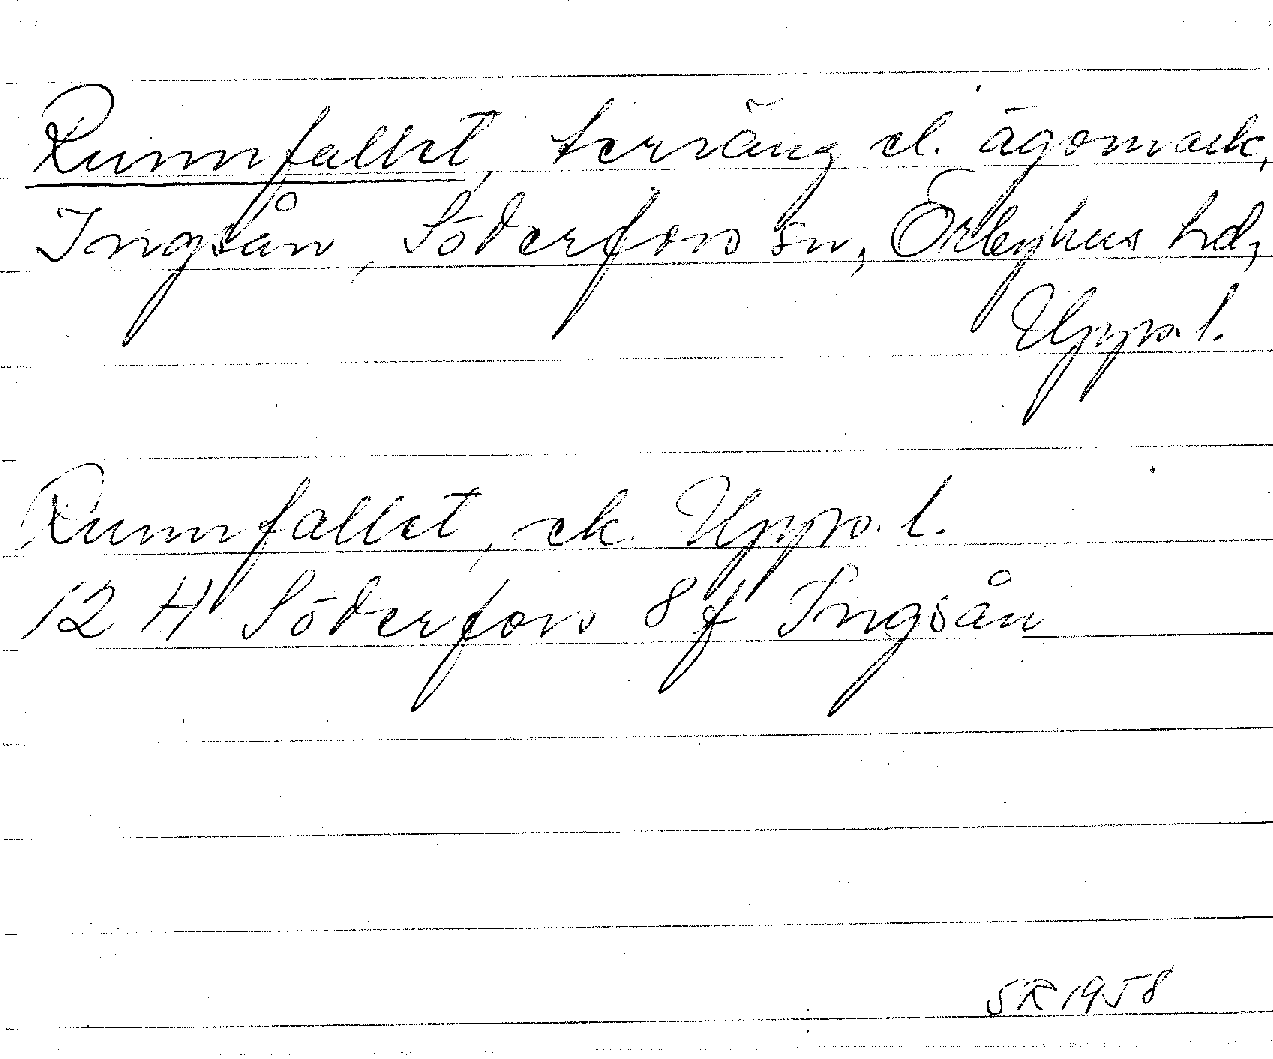 Runnfallet, terräng el. ägomark,
Ingsån, Söderfors sn, Örbyhus hd,
Upps. l.
Runnfallet, ek. Upps. l.
12 H Söderfors 8 f Ingsån
SR 1958